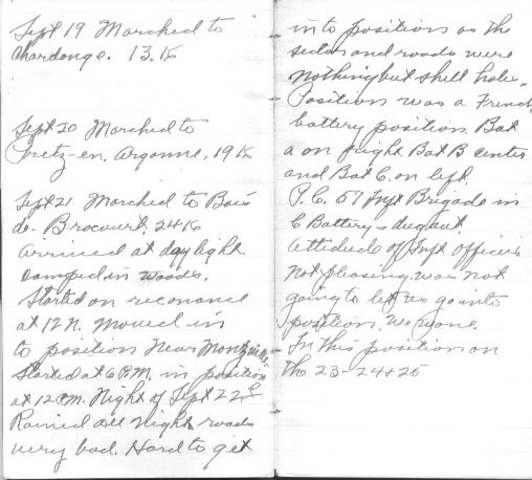 Sept 19 Marched to
Chardonge. 13. K

Sept 20 Marched to
Pretz-en. Argonne, 19 K

Sept 21 Marched to Bois
de. Brocourt. 24 K
arrived at daylight.
camped in woods.
Started on reconance
at 12 N. Moved in
to position Near
Started at 6 P.M. in position
at 12 P.M. Night of Sept 22nd
Rained all night. roads
very bad. Hard to get
into positions as the
and roads were
nothing but shell holes.
Position was a French
battery position. Bat
a on right Bat B center
and Bat C. on left.
P. C. 57 Inft Brigade in
C Battery dug out.
Attitude of Inft officers
Not pleasing. was not
going to let us go into
position. We
In this position on
the 23-24 + 25